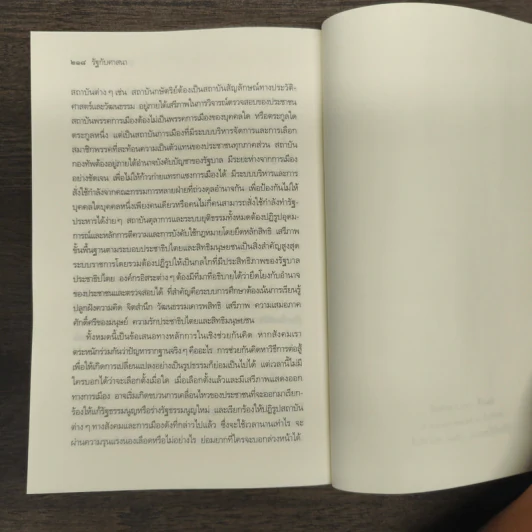 ๒๑๔ รัฐกับศาสนา
สถาบันต่างๆ เช่น สถาบันกษัตริย์ต้องเป็นสถาบันสัญลักษณ์ทางประวัติ-
ศาสตร์และวัฒนธรรม อยู่ภายใต้เสรีภาพในการวิจารณ์ตรวจสอบของประชาชน
สถาบันพรรคการเมืองต้องไม่เป็นพรรคการเมืองของบุคคลใด หรือตระกูลใด
ตระกูลหนึ่ง แต่เป็นสถาบันการเมืองที่มีระบบบริหารจัดการและการเลือก
สมาชิกพรรคที่สะท้อนความเป็นตัวแทนของประชาชนทุกภาคส่วน สถาบัน
กองทัพต้องอยู่ภายใต้อำนาจบังคับบัญชาของรัฐบาล มีระยะห่างจากการเมือง
อย่างชัดเจน เพื่อไม่ให้ก้าวก่ายแทรกแซงการเมืองได้ มีระบบบริหารและการ
สั่งใช้กำลังจากคณะกรรมการหลายฝ่ายที่ถ่วงดุลอำนาจกัน เพื่อป้องกันไม่ให้
บุคคลใดบุคคลหนึ่งเพียงคนเดียวหรือคนไม่กี่คนสามารถสั่งใช้กำลังทำรัฐ-
ประหารได้ง่ายๆ สถาบันตุลาการและระบบยุติธรรมทั้งหมดต้องปฏิรูปอุดม-
การณ์และหลักการตีความและการบังคับใช้กฎหมายโดยยึดหลักสิทธิ เสรีภาพ
ขั้นพื้นฐานตามระบอบประชาธิปไตยและสิทธิมนุษยชนเป็นสิ่งสำคัญสูงสุด
ระบบราชการโดยรวมต้องปฏิรูปให้เป็นกลไกที่มีประสิทธิภาพของรัฐบาล
ประชาธิปไตย องค์กรอิสระต่างๆ ต้องมีที่มาที่อธิบายได้ว่ายึดโยงกับอำนาจ
ของประชาชนและตรวจสอบได้ ที่สำคัญคือระบบการศึกษาต้องเน้นการเรียนรู้
ปลูกฝังความคิด จิตสำนึก วัฒนธรรมเคารพสิทธิ เสรีภาพ ความเสมอภาค
ศักดิ์ศรีของมนุษย์ ความรักประชาธิปไตยและสิทธิมนุษยชน
ทั้งหมดนี้เป็นข้อเสนอทางหลักการในเชิงช่วยกันคิด หากสังคมเรา
ตระหนักร่วมกันว่าปัญหารากฐานจริงๆ คืออะไร การช่วยกันคิดหาวิธีการต่อสู้
เพื่อให้เกิดการเปลี่ยนแปลงอย่างเป็นรูปธรรมก็ย่อมเป็นไปได้ แต่เวลานี้ไม่มี
ใครบอกได้ว่าจะเลือกตั้งเมื่อใด เมื่อเลือกตั้งแล้วและมีเสรีภาพแสดงออก
ทางการเมือง อาจเริ่มเกิดขบวนการเคลื่อนไหวของประชาชนที่จะออกมาเรียก-
ร้องให้แก้รัฐธรรมนูญหรือร่างรัฐธรรมนูญใหม่ และเรียกร้องให้ปฏิรูปสถาบัน
ต่างๆ ทางสังคมและการเมืองดังที่กล่าวไปแล้ว ซึ่งจะใช้เวลานานเท่าไร จะ
ผ่านความรุนแรงนองเลือดหรือไม่อย่างไร ย่อมยากที่ใครจะบอกล่วงหน้าได้